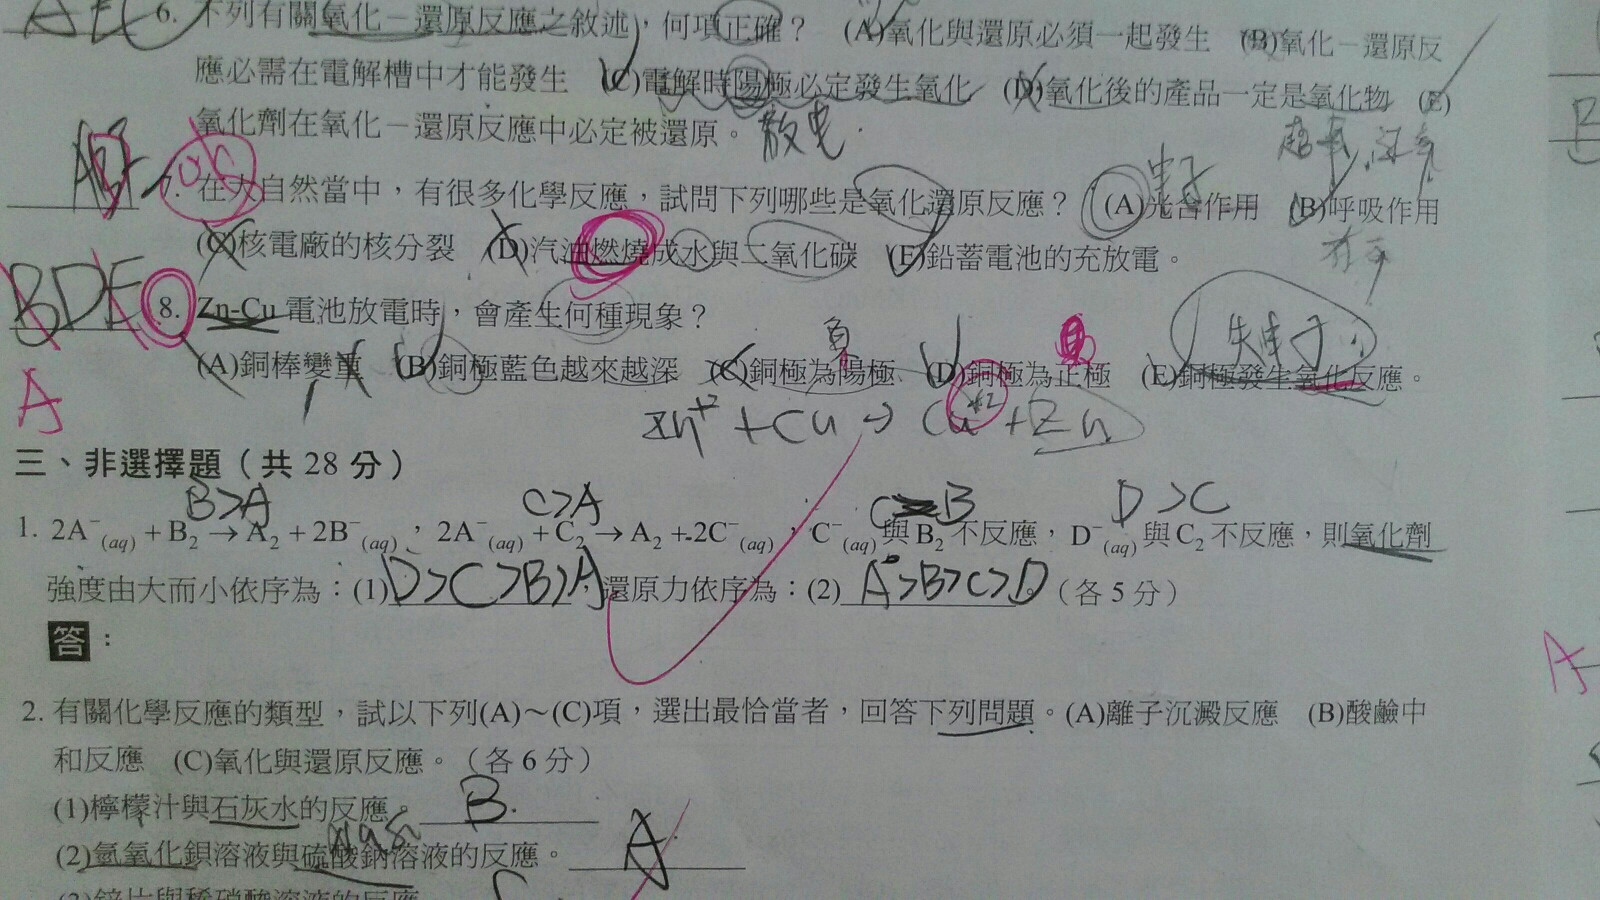 6. 下列有關氧化－還原反應之敘述，何項正確？ (A)氧化與還原必須一起發生 (B)氧化－還原反
應必需在電解槽中才能發生 (C)電解時陽極必定發生氧化 (D)氧化後的產品一定是氧化物 (E)
氧化劑在氧化－還原反應中必定被還原。 放電
7. 在大自然當中，有很多化學反應，試問下列哪些是氧化還原反應？ (A)光合作用 (B)呼吸作用
(C)核電廠的核分裂 (D)汽油燃燒成水與二氧化碳 (E)鉛蓄電池的充放電。
BDE 8. Zn-Cu 電池放電時，會產生何種現象？
負 失電子
A (A)銅棒變重 (B)銅極藍色越來越深 (C)銅極為陽極 (D)銅極為正極 (E)銅極發生氧化反應。
Zn+2 + Cu → Cu+2 + Zn
三、非選擇題（共 28 分）
B>A C>A B D>C
1. 2A⁻(aq) + B₂ → A₂ + 2B⁻(aq)，2A⁻(aq) + C₂ → A₂ + 2C⁻(aq)，C⁻(aq)與 B₂ 不反應，D⁻(aq)與 C₂ 不反應，則氧化劑
強度由大而小依序為：(1) D>C>B>A ，還原力依序為：(2) A>B>C>D 。（各 5 分）
答：
A
2. 有關化學反應的類型，試以下列(A)～(C)項，選出最恰當者，回答下列問題。(A)離子沉澱反應 (B)酸鹼中
和反應 (C)氧化與還原反應。（各 6 分）
(1)檸檬汁與石灰水的反應。 B
(2)氫氧化鋇溶液與硫酸鈉溶液的反應。 A
(3)鋅片與稀硝酸溶液的反應